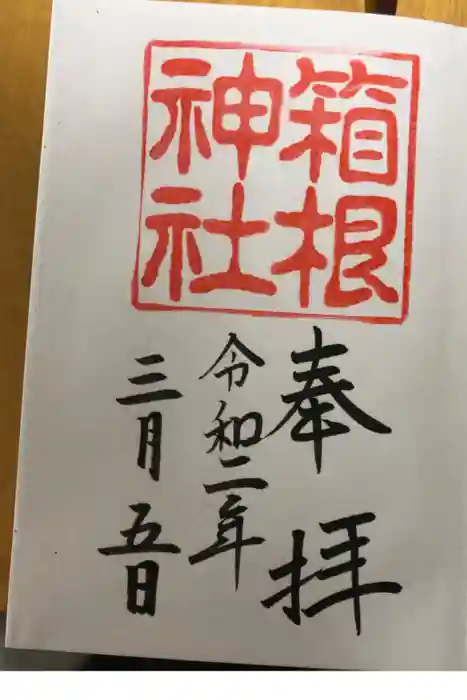 箱根
神社
奉拝
令和二年
三月五日